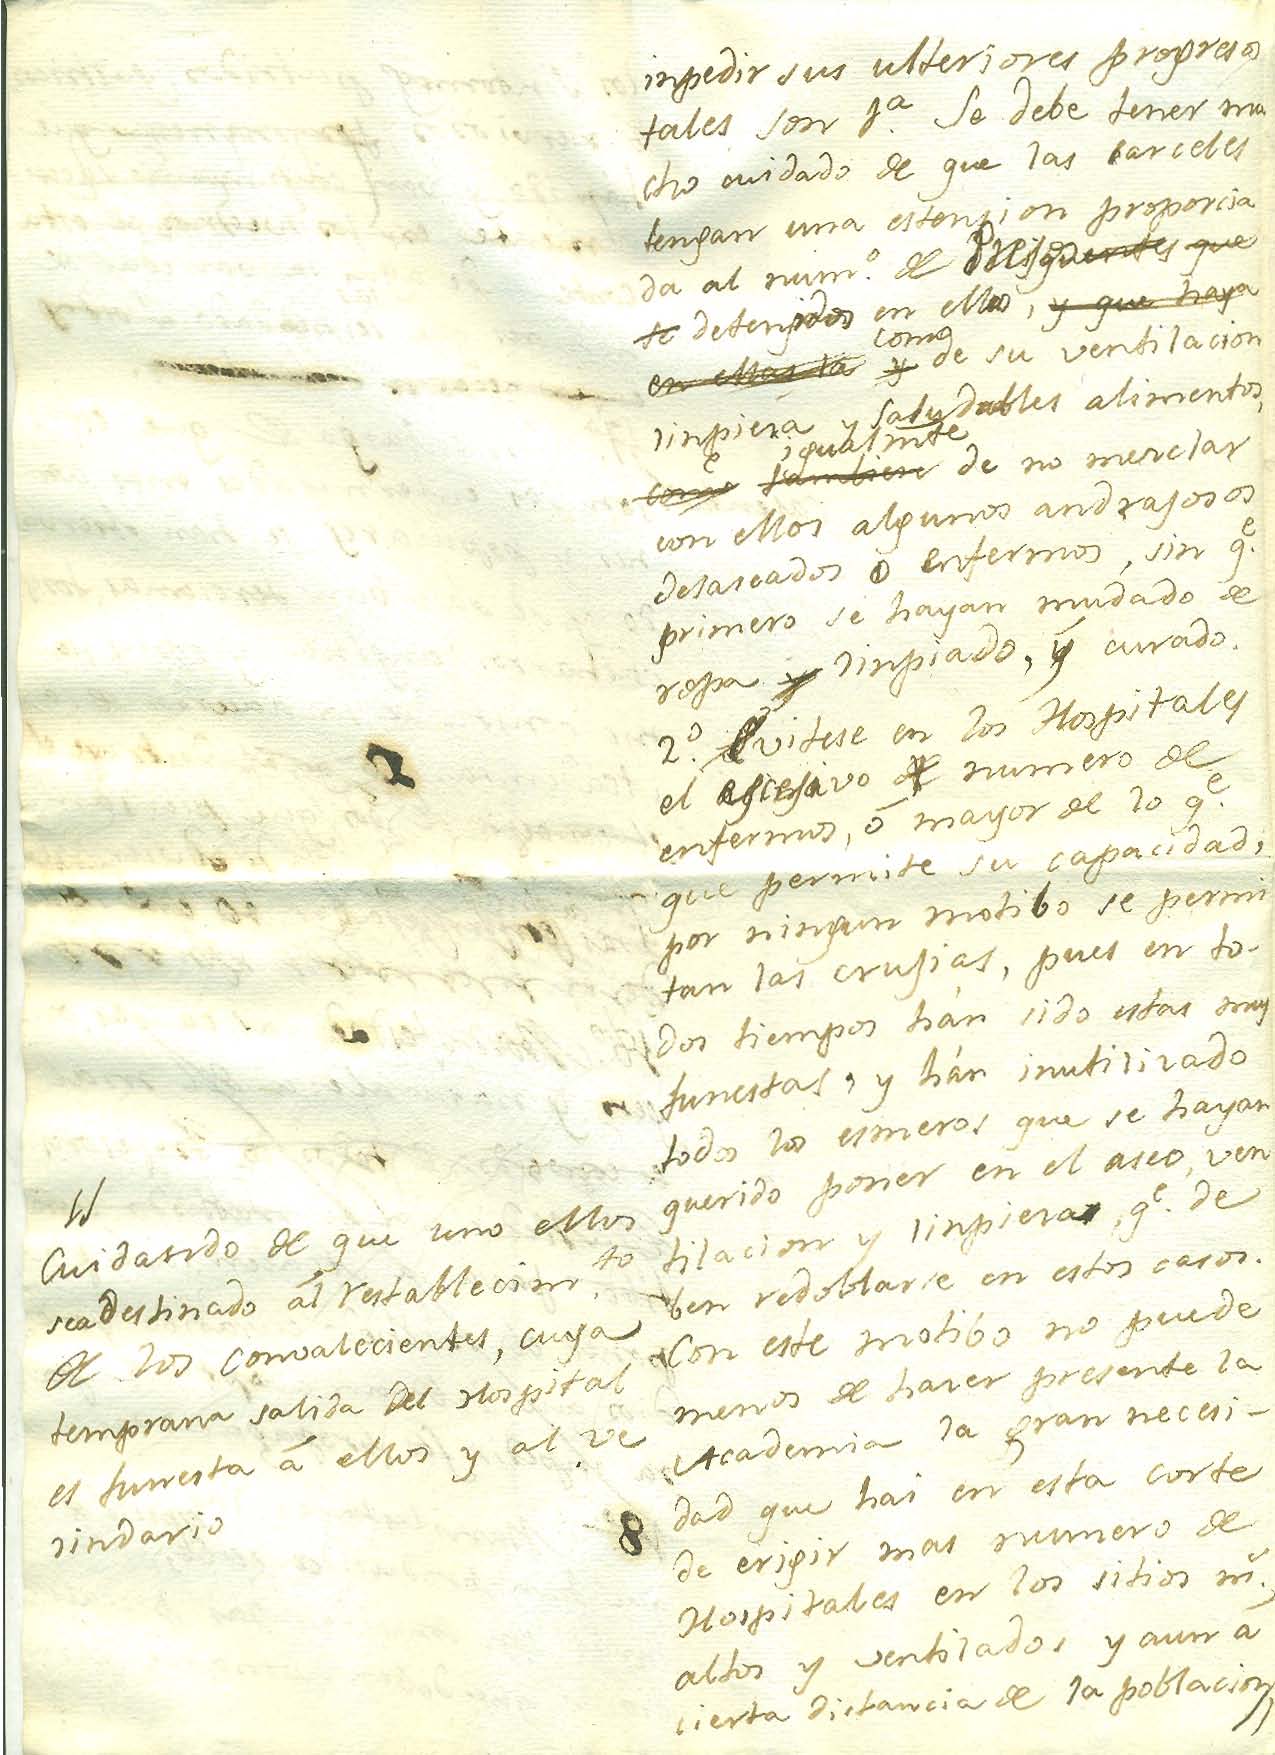 inpedir sus ulteriores progresos
tales son 1ª. Se debe tener mu
cho cuidado de que las carceles
tengan una estension proporcia
da al num.º de que
se detenidos en ellas, y que haya
en ellas la y como de su ventilacion
linpieza y saludables alimentos,
como tambien igualmte de no mezclar
con ellos algunos andrajosos
desaseados o enfermos, sin q.e
primero se hayan mudado de
ropa y linpiado, y curado.
2.º Evitese en los Hospitales
el escesivo numero de
enfermos, ó mayor de lo q.e
que permite su capacidad,
por ningun motibo se permi
tan las crujias, pues en to-
dos tiempos hán sido estas muy
funestas, y hán inutilizado
todos los esmeros que se hayan
querido poner en el aseo, ven
tilacion y linpieza, q.e de
ben redoblarse en estos casos.
Con este motibo no puede
menos de hazer presente la
Academia la gran necesi-
dad que hai en esta corte
de erigir mas numero de
Hospitales en los sitios m.s
altos y ventilados y aun á
cierta distancia de la poblacion
Cuidando de que uno ellos
sea destinado ál restablecim.to
de los convalecientes, cuya
temprana salida del Hospital
es funesta á ellos y al ve
cindario
7
8